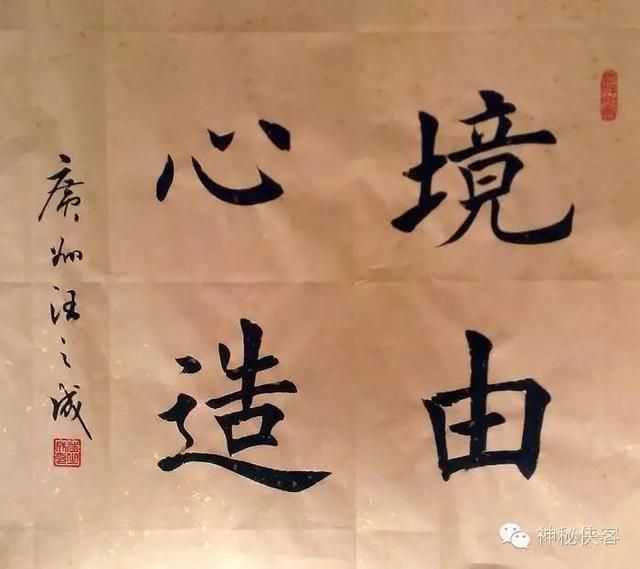 境由
心造
廣州汪之成
神秘侠客